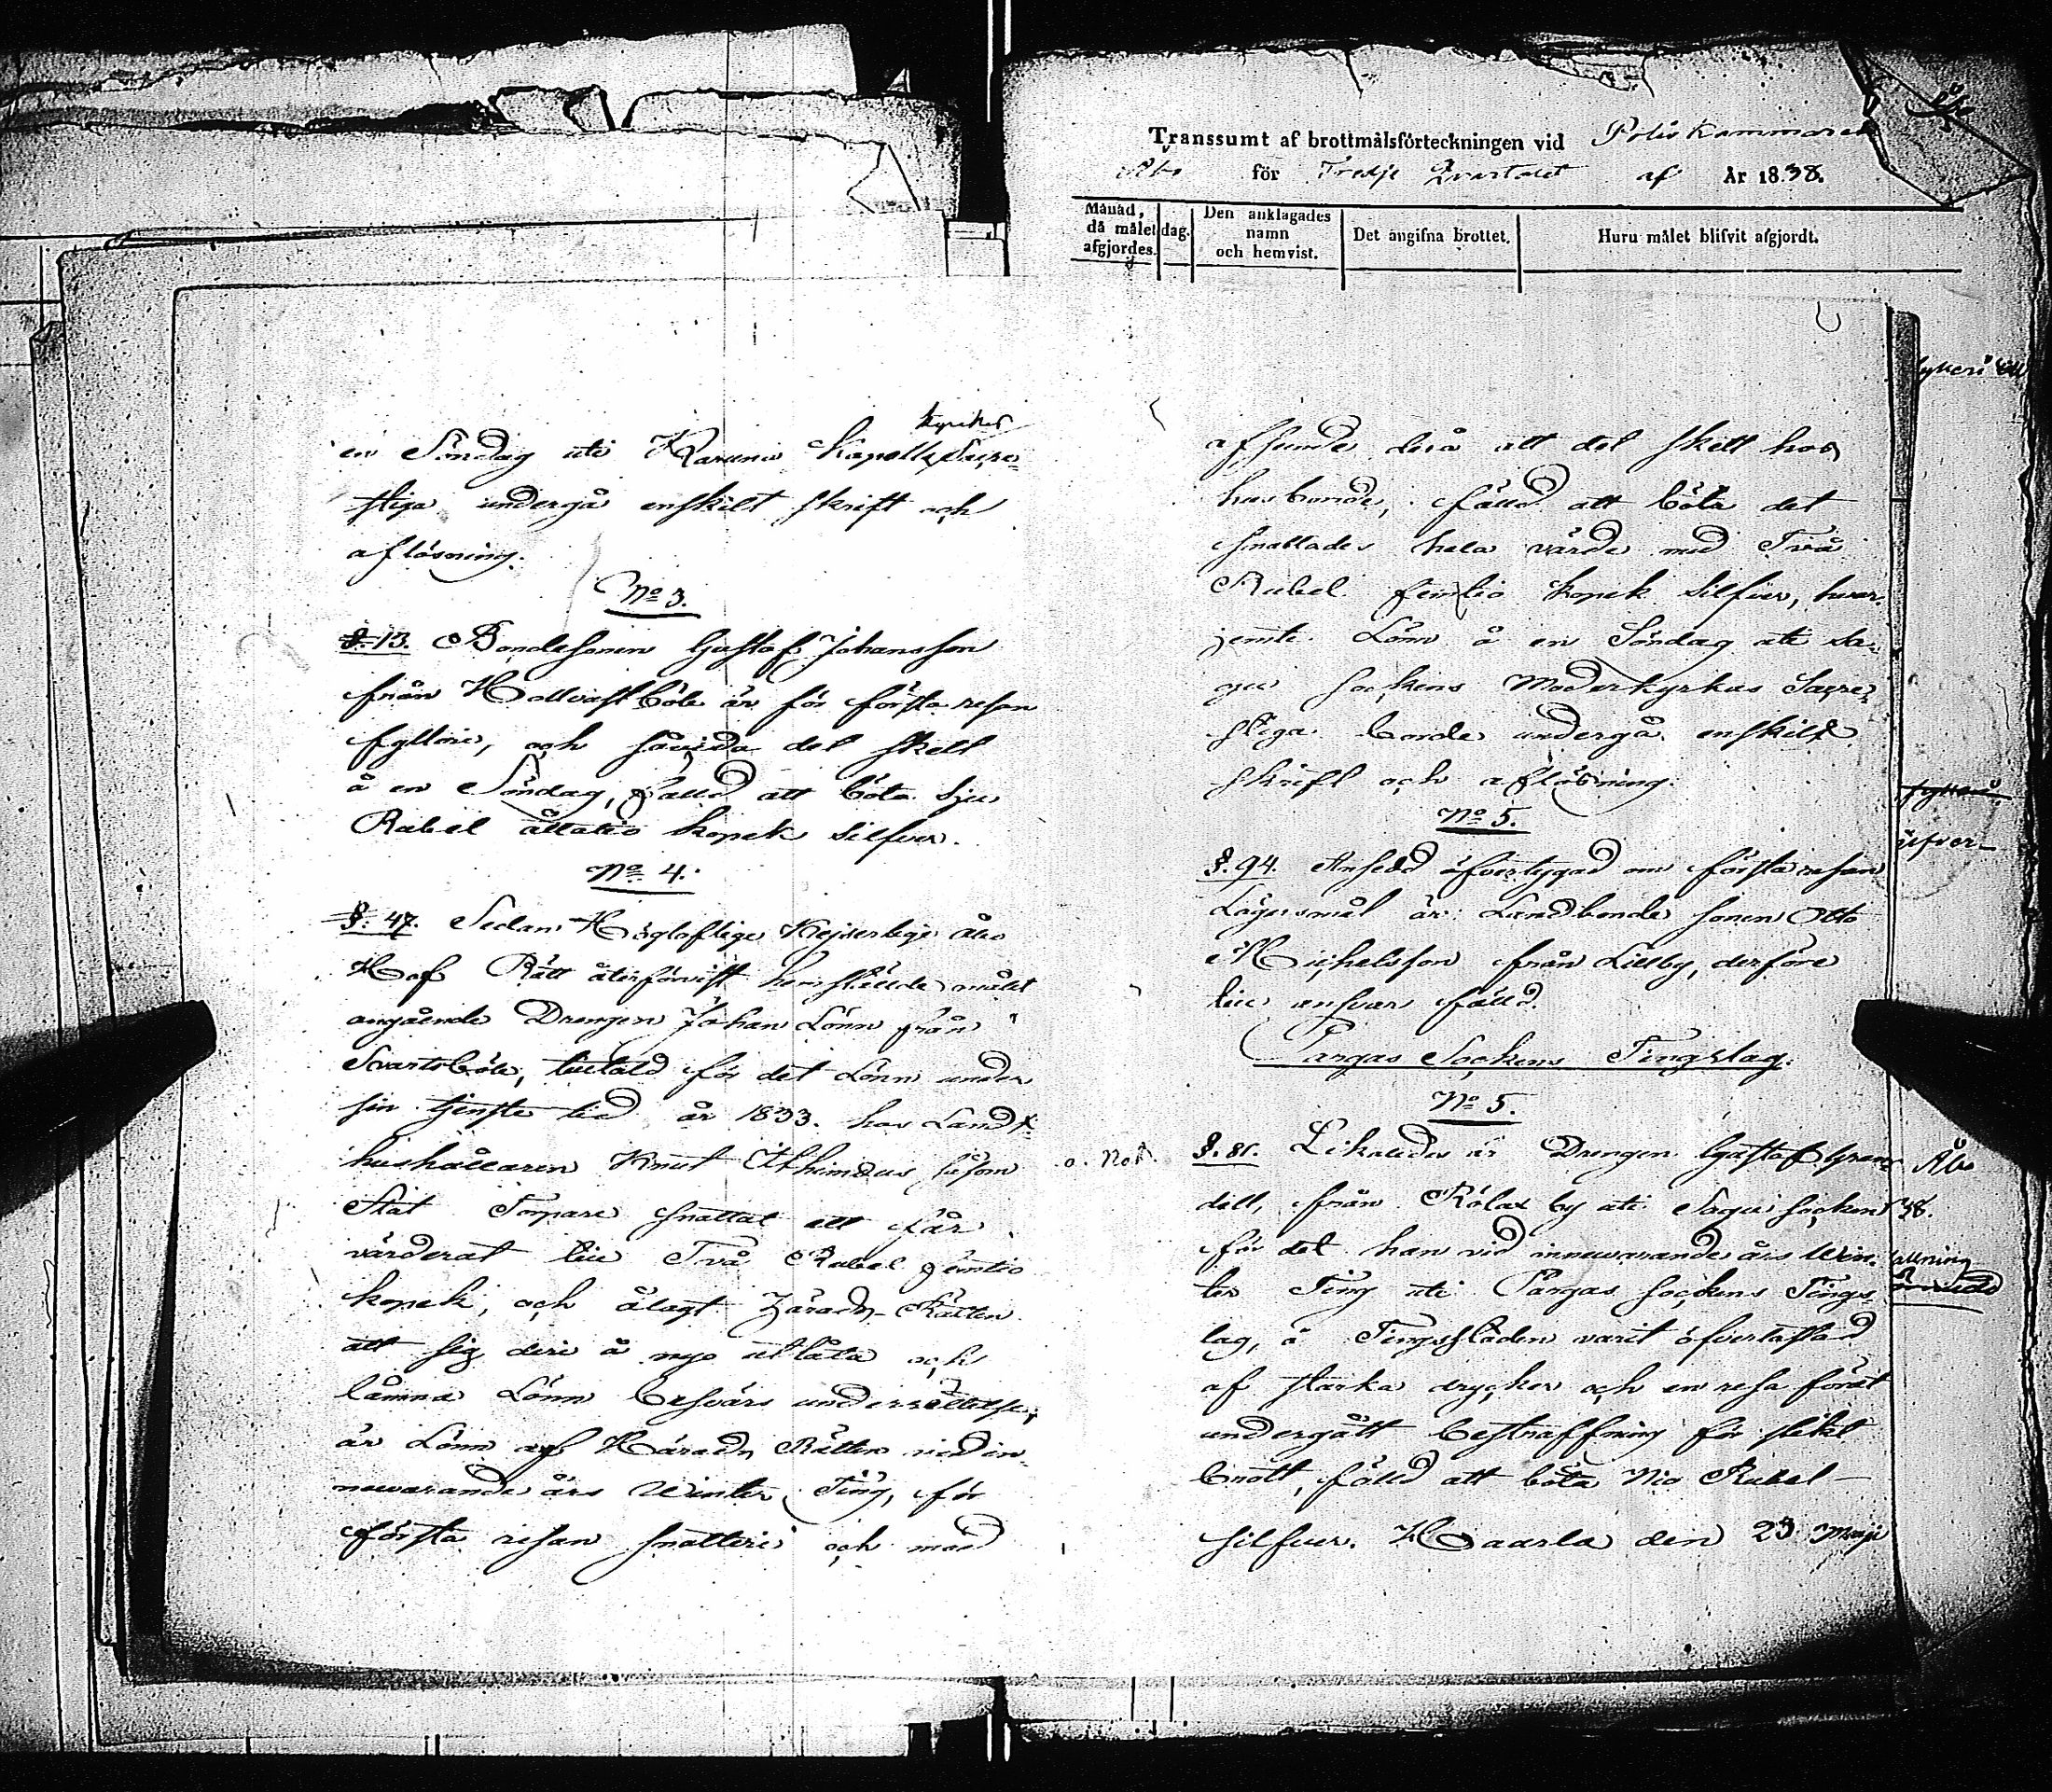 kyrkas
en Söndag uti Karuna Kapells Sacre-
stiga undergå enskilt skrift och
aflösning.
No 3.
§. 13. Bondesonen Gustaf Johansson
från Hallvastböle är för första resan
fylleri, och såvida det skett
å en Söndag, fälld att böta Sju
Rubel åttatio kopek silfver.
No 4.
§. 47. Sedan Högloflige Kejserlige Åbo
Hof Rätt återförvist hemstälde målet
angående Drengen Johan Lönn från
Svartsböle, tilltald för det Lönn under
sin tjenste tid år 1833. hos Landt-
hushållaren Knut såsom
Stat Torpare snattat ett får
värderat till Två Rubel femtio
kopek, och ålagt Härads Rätten
att sig deri å nyo utlåta och
lämna Lönn besvärs underrättelse;
är Lönn af Härads Rätten vid in-
nevarande års Winter Ting, för
första resan snatteri och med
Transsumt af brottmålsförteckningen vid Poliskammaren
Åbo för Tredje Qvartalet af År 1838.
Månad, då målet afgjordes. dag. Den anklagades namn och hemvist. Det angifna brottet. Huru målet blifvit afgjordt.
afseende derå att det skett hos
husbonde, fälld att böta det
snattades hela värde med Två
Rubel femtio kopek silfver, hvar-
jemte Lönn å en Söndag uti Sa-
gu Sockens Moderkyrkas Sacre-
stiga borde undergå enskilt
skrift och aflösning.
No 5.
§. 94. Ansedd öfvertygad om första resan
Lägersmål är Landbonde sonen Otto
Michelsson från Lillby, derföre
till ansvar fälld.
Pargas Sockens Tingslag.
No 5.
§. 81. Likaledes är Drengen Gustaf Gran-
dell, från Rölax by uti Sagu socken
för det han vid innevarande års Win-
ter Ting uti Pargas sockens Tings-
lag, å Tingsstaden varit öfverlastad
af starka drycker och en resa förut
undergått bestraffning för slikt
brott, fälld att böta Nio Rubel
silfver. Haarla den 23 Maji
Åbo
38.